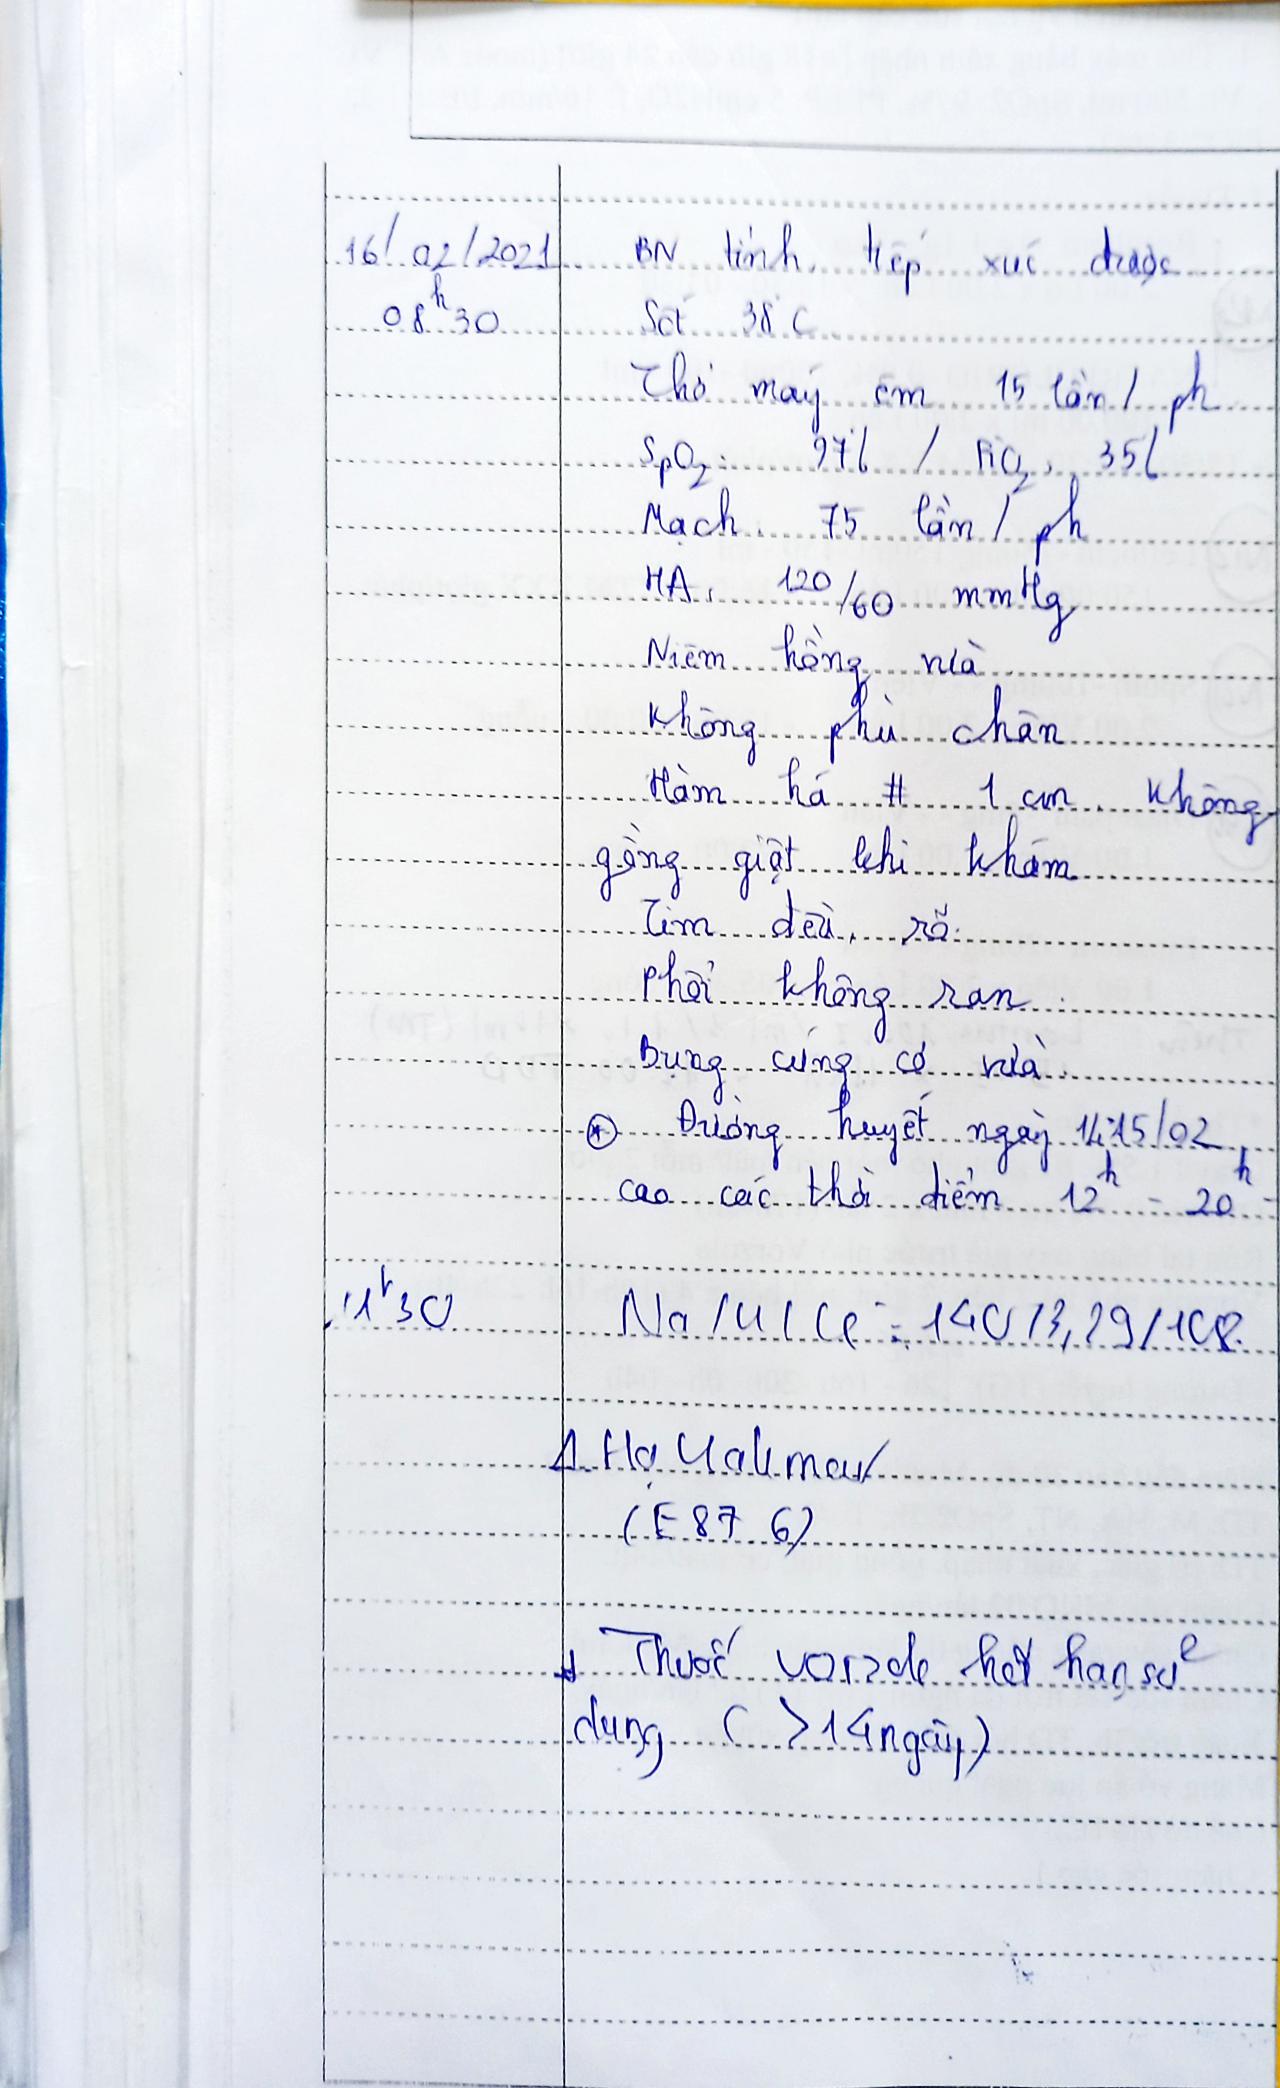 16/02/2021 BN tỉnh, tiếp xúc được
08h30 Sốt 38°C
Thở máy êm 15 lần/ph
SpO2: 97% / FiO2, 35%
Mạch. 75 lần/ph
HA, 120/60 mmHg
Niêm hồng vừa
Không phù chân
Hàm há # 1 cm. Không
gồng giật khi khám
Tim đều, rõ.
Phổi không ran.
Bụng cứng cơ vừa.
* Đường huyết ngày 14,15/02
cao các thời điểm 12h - 20h
11h30 Na/K/Cl-: 140/3,29/108
Δ. Hạ Kali máu
(E87.6)
Thuốc hết hạn sử
dụng (>14 ngày)